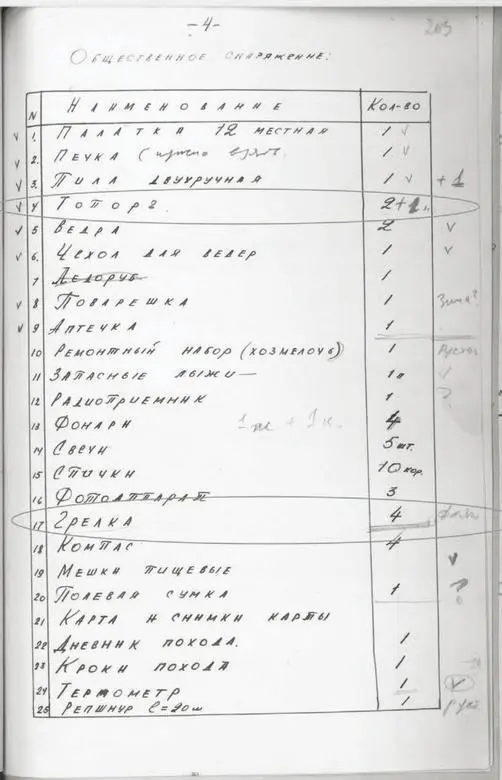 -4-
Общественное снаряжение:
N Наименование Кол-во
1. Палатки 12 местная 1
2. Печка ( 1
3. Пила двухручная 1 +1
4 Топор 2+1
5 Ведра 2
6. Чехол для ведер 1
7 Ледоруб 1
8 Поварешка 1
9 Аптечка 1
10 Ремонтный набор (хозмелочь) 1
11 Запасные лыжи — 1
12 Радиоприемник 1 ?
13 Фонари 4
14 Свечи 5 шт.
15 Спички 10 кор.
16 Фотоаппарат 3
17 Грелка 4
18 Компас 4
19 Мешки пищевые
20 Полевая сумка 1 ?
21 Карта и снимки карты
22 Дневник похода. 1
23 Кроки похода 1
24 Термометр 1
25 Репшнур l=20м 1